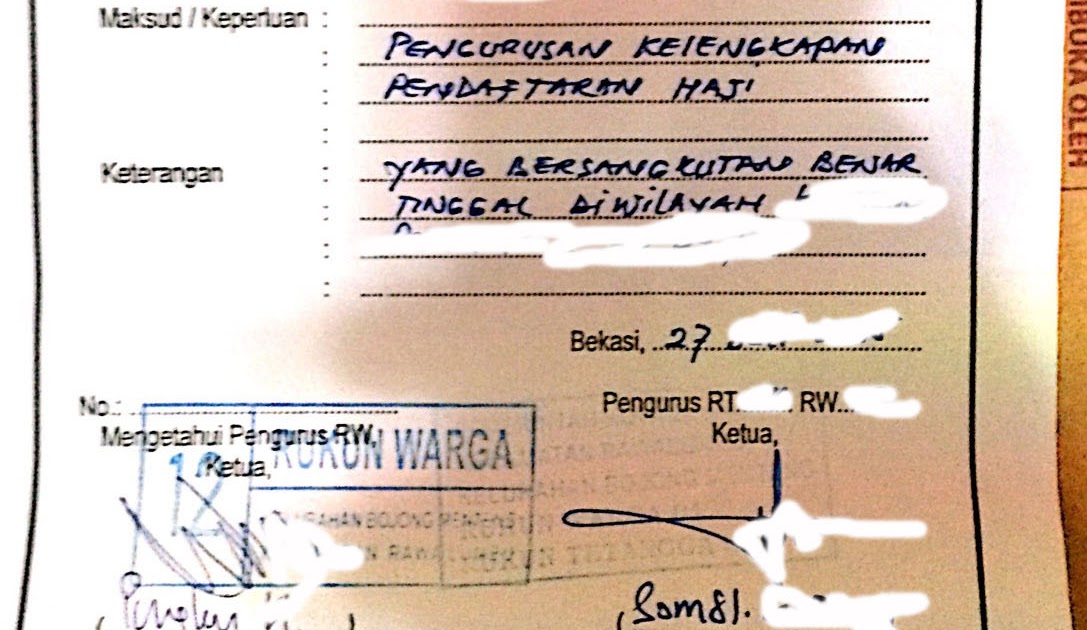 Maksud / Keperluan :
: PENGURUSAN KELENGKAPAN
: PENDAFTARAN HAJI
:
Keterangan : YANG BERSANGKUTAN BENAR
: TINGGAL DIWILAYAH
:
:
Bekasi, 27
No.:
Pengurus RT. RW.
Mengetahui Pengurus RW,
Ketua,
Ketua,
RUKUN WARGA
12
KELURAHAN BOJONG
RUKUN TETANGGA
IBUKA OLEH